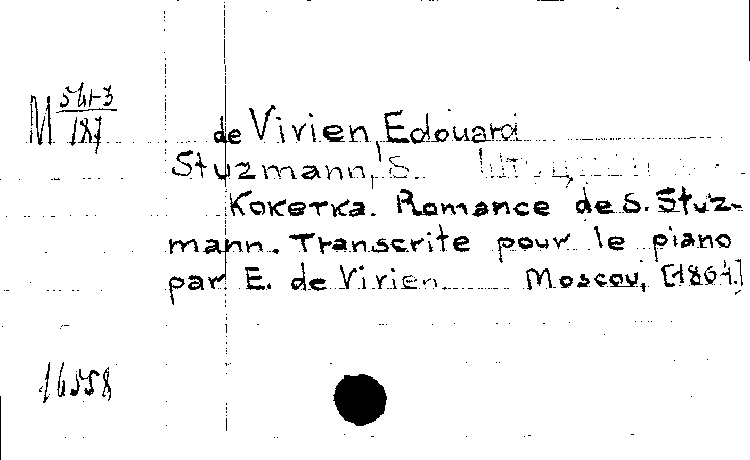 M 541-3/187
de Vivien, Edouard
Stuzmann, S.
Кокетка. Romance de S. Stuz-
mann. Transcrite pour le piano
par E. de Vivien Moscou, [1864.]
16558